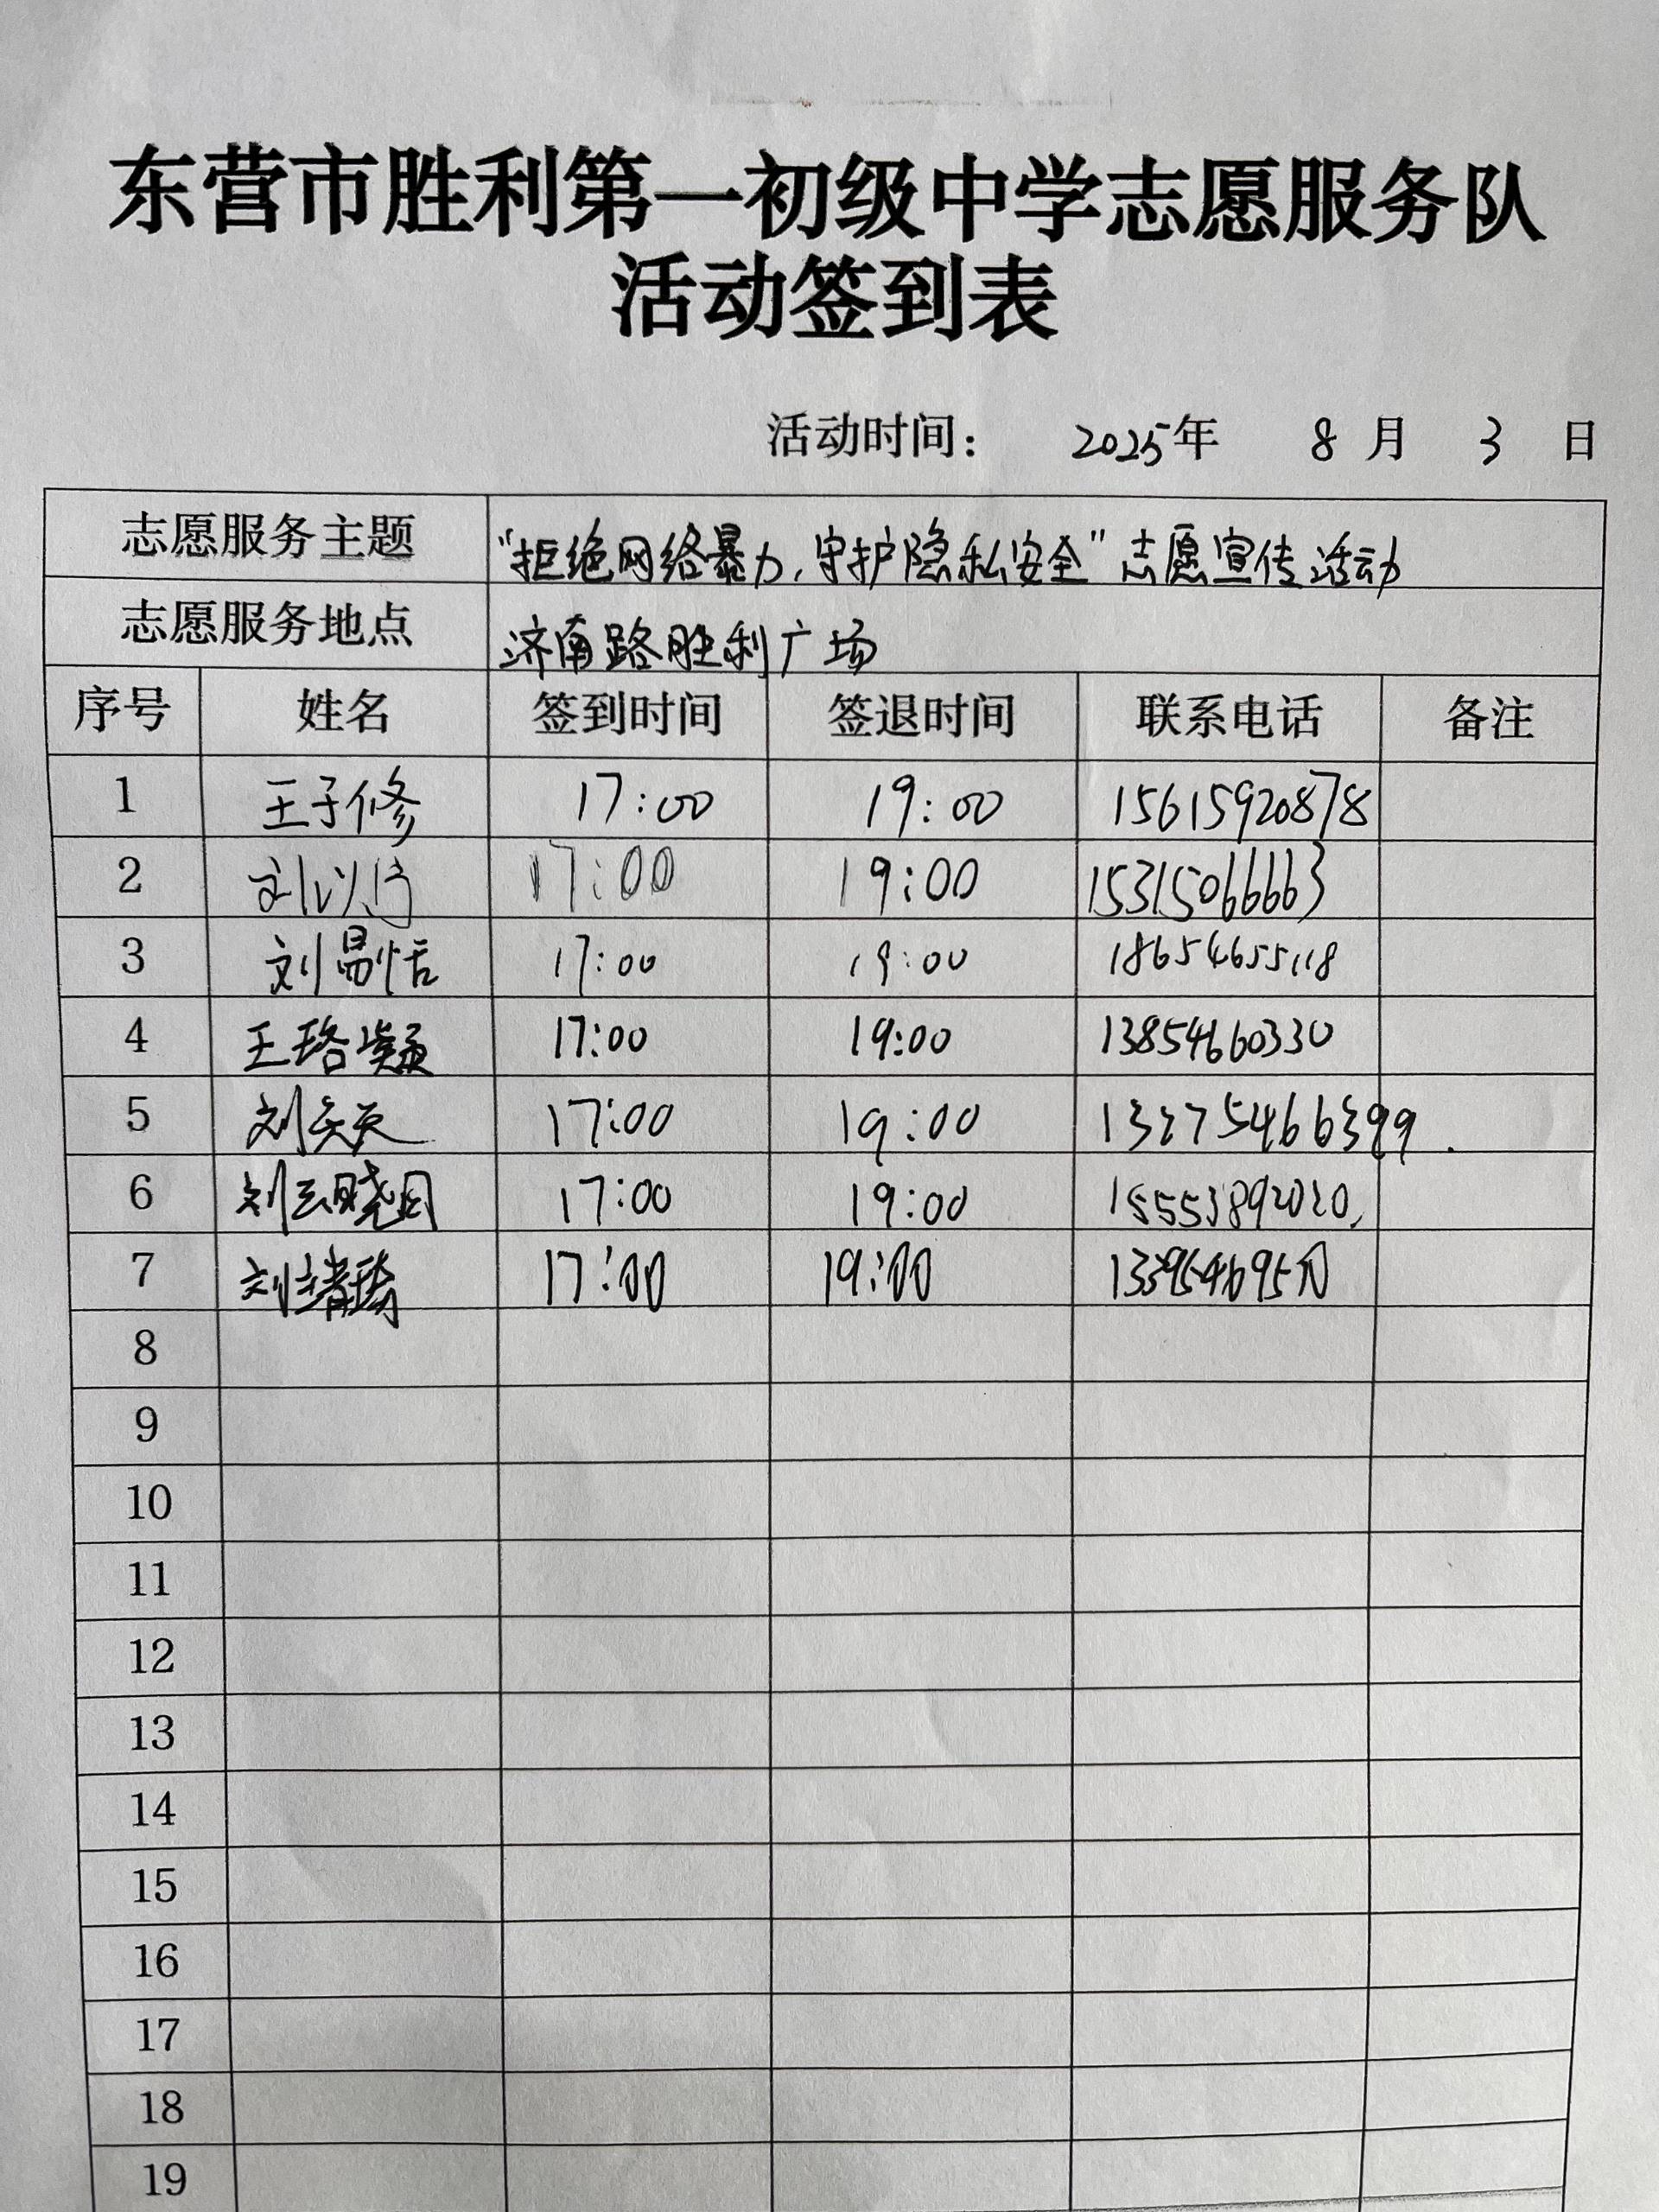 东营市胜利第一初级中学志愿服务队
活动签到表
活动时间: 2025年 8 月 3 日
志愿服务主题 “拒绝网络暴力,守护隐私安全”志愿宣传活动
志愿服务地点 济南路胜利广场
序号 姓名 签到时间 签退时间 联系电话 备注
1 王子修 17:00 19:00 15615920878
2 17:00 19:00 15315066663
3 刘勗恬 17:00 19:00 18654655118
4 王珞凝 17:00 19:00 13854660330
5 17:00 19:00
6 17:00 19:00
7 17:00 19:00
8
9
10
11
12
13
14
15
16
17
18
19